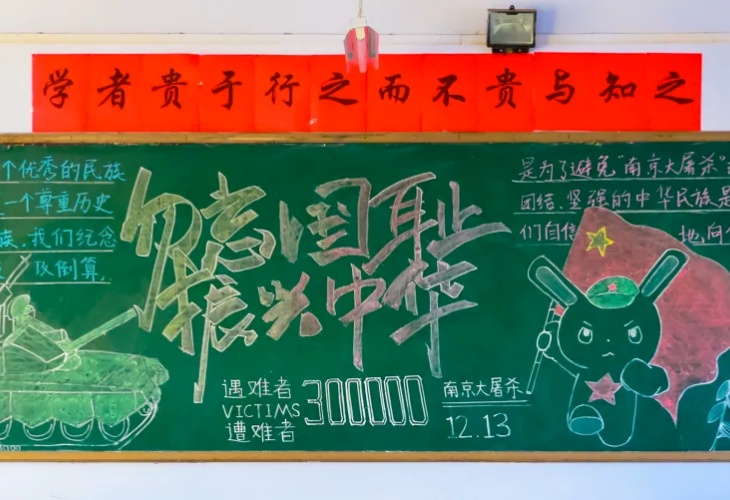 学者贵于行之而不贵与知之
个优秀的民族
一个尊重历史
族,我们纪念
反倒算,
勿忘国耻
振兴中华
遇难者
VICTIMS
遭难者
300000
南京大屠杀
12.13
是为了避免"南京大屠杀"
团结、坚强的中华民族是
们自信 地,向